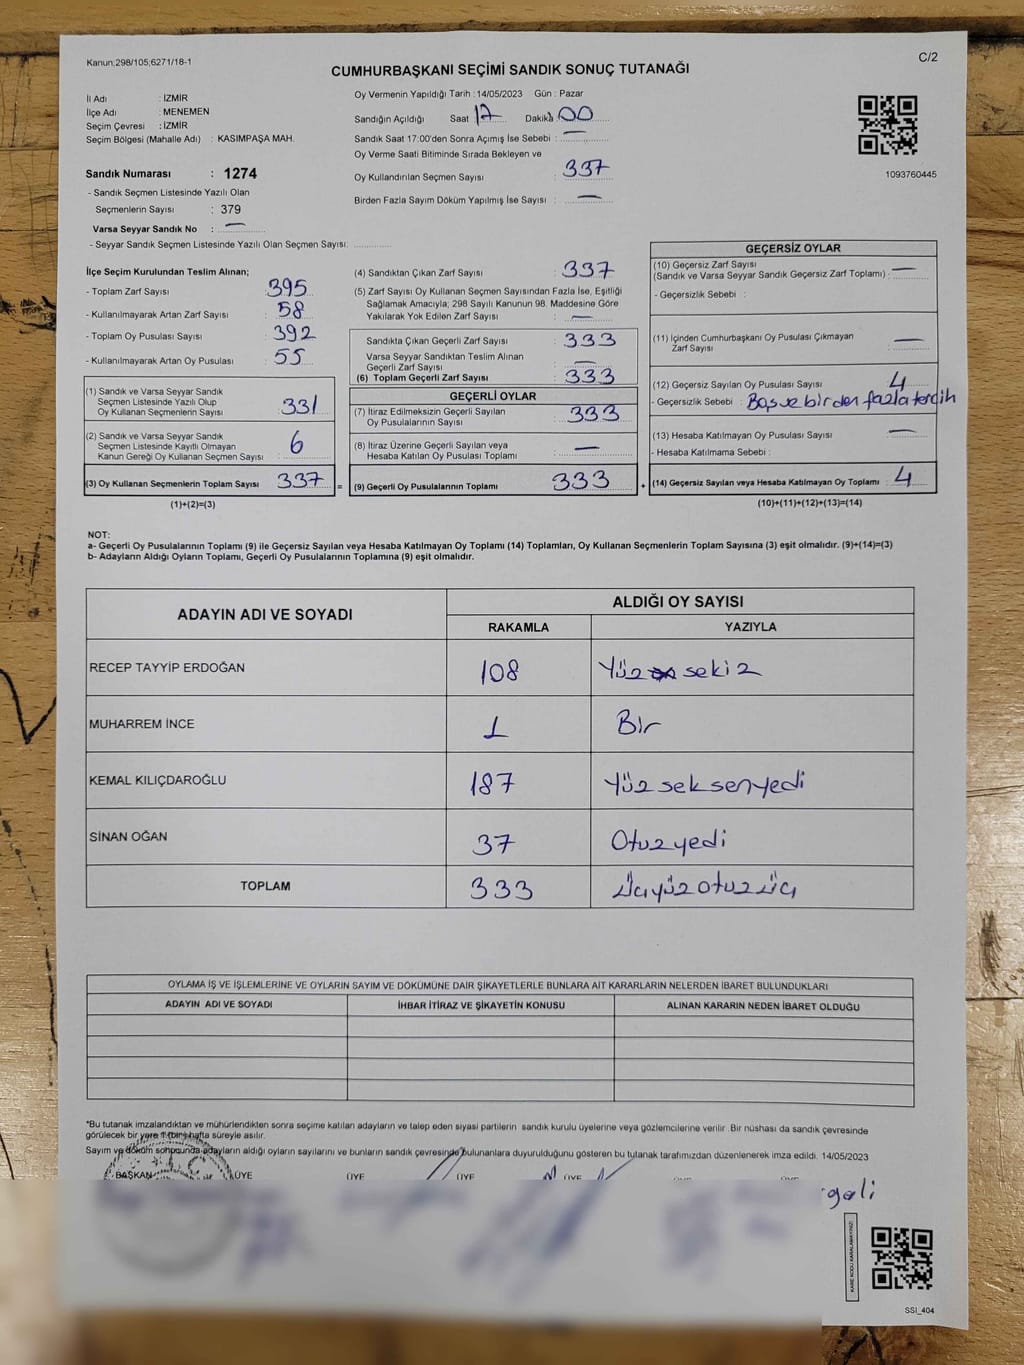 Kanun;298/105;6271/18-1
C/2
CUMHURBAŞKANI SEÇİMİ SANDIK SONUÇ TUTANAĞI
İl Adı : İZMİR
İlçe Adı : MENEMEN
Seçim Çevresi : İZMİR
Seçim Bölgesi (Mahalle Adı) : KASIMPAŞA MAH.
Sandık Numarası : 1274
- Sandık Seçmen Listesinde Yazılı Olan
Seçmenlerin Sayısı : 379
Varsa Seyyar Sandık No : —
- Seyyar Sandık Seçmen Listesinde Yazılı Olan Seçmen Sayısı:
Oy Vermenin Yapıldığı Tarih : 14/05/2023 Gün : Pazar
Sandığın Açıldığı Saat 17 Dakika 00
Sandık Saat 17:00'den Sonra Açımış İse Sebebi : —
Oy Verme Saati Bitiminde Sırada Bekleyen ve
Oy Kullandırılan Seçmen Sayısı : 337
Birden Fazla Sayım Döküm Yapılmış İse Sayısı : —
1093760445
İlçe Seçim Kurulundan Teslim Alınan;
- Toplam Zarf Sayısı : 395
- Kullanılmayarak Artan Zarf Sayısı : 58
- Toplam Oy Pusulası Sayısı : 392
- Kullanılmayarak Artan Oy Pusulası : 55
(1) Sandık ve Varsa Seyyar Sandık
Seçmen Listesinde Yazılı Olup
Oy Kullanan Seçmenlerin Sayısı : 331
(2) Sandık ve Varsa Seyyar Sandık
Seçmen Listesinde Kayıtlı Olmayan
Kanun Gereği Oy Kullanan Seçmen Sayısı : 6
(3) Oy Kullanan Seçmenlerin Toplam Sayısı : 337 =
(1)+(2)=(3)
(4) Sandıktan Çıkan Zarf Sayısı : 337
(5) Zarf Sayısı Oy Kullanan Seçmen Sayısından Fazla İse, Eşitliği
Sağlamak Amacıyla; 298 Sayılı Kanunun 98. Maddesine Göre
Yakılarak Yok Edilen Zarf Sayısı : —
Sandıkta Çıkan Geçerli Zarf Sayısı : 333
Varsa Seyyar Sandıktan Teslim Alınan
Geçerli Zarf Sayısı : —
(6) Toplam Geçerli Zarf Sayısı : 333
GEÇERLİ OYLAR
(7) İtiraz Edilmeksizin Geçerli Sayılan
Oy Pusulalarının Sayısı : 333
(8) İtiraz Üzerine Geçerli Sayılan veya
Hesaba Katılan Oy Pusulası Toplamı : —
(9) Geçerli Oy Pusulalarının Toplamı : 333 +
GEÇERSİZ OYLAR
(10) Geçersiz Zarf Sayısı
(Sandık ve Varsa Seyyar Sandık Geçersiz Zarf Toplamı) : —
- Geçersizlik Sebebi :
(11) İçinden Cumhurbaşkanı Oy Pusulası Çıkmayan
Zarf Sayısı : —
(12) Geçersiz Sayılan Oy Pusulası Sayısı : 4
- Geçersizlik Sebebi : Boş ve birden fazla tercih
(13) Hesaba Katılmayan Oy Pusulası Sayısı : —
- Hesaba Katılmama Sebebi :
(14) Geçersiz Sayılan veya Hesaba Katılmayan Oy Toplamı : 4
(10)+(11)+(12)+(13)=(14)
NOT:
a- Geçerli Oy Pusulalarının Toplamı (9) ile Geçersiz Sayılan veya Hesaba Katılmayan Oy Toplamı (14) Toplamları, Oy Kullanan Seçmenlerin Toplam Sayısına (3) eşit olmalıdır. (9)+(14)=(3)
b- Adayların Aldığı Oyların Toplamı, Geçerli Oy Pusulalarının Toplamına (9) eşit olmalıdır.
ADAYIN ADI VE SOYADI
ALDIĞI OY SAYISI
RAKAMLA YAZIYLA
RECEP TAYYİP ERDOĞAN 108 Yüz sekiz
MUHARREM İNCE 1 Bir
KEMAL KILIÇDAROĞLU 187 Yüz seksenyedi
SİNAN OĞAN 37 Otuzyedi
TOPLAM 333 Üçyüzotuzüç
OYLAMA İŞ VE İŞLEMLERİNE VE OYLARIN SAYIM VE DÖKÜMÜNE DAİR ŞİKAYETLERLE BUNLARA AİT KARARLARIN NELERDEN İBARET BULUNDUKLARI
ADAYIN ADI VE SOYADI İHBAR İTİRAZ VE ŞİKAYETİN KONUSU ALINAN KARARIN NEDEN İBARET OLDUĞU
*Bu tutanak imzalandıktan ve mühürlendikten sonra seçime katılan adayların ve talep eden siyasi partilerin sandık kurulu üyelerine veya gözlemcilerine verilir. Bir nüshası da sandık çevresinde
görülecek bir yere 1 (bir) hafta süreyle asılır.
Sayım ve döküm sonucunda adayların aldığı oyların sayılarını ve bunların sandık çevresinde bulunanlara duyurulduğunu gösteren bu tutanak tarafımızdan düzenlenerek imza edildi. 14/05/2023
BAŞKAN ÜYE ÜYE ÜYE ÜYE
KARE KODU KARALAMAYINIZ!
SSI_404